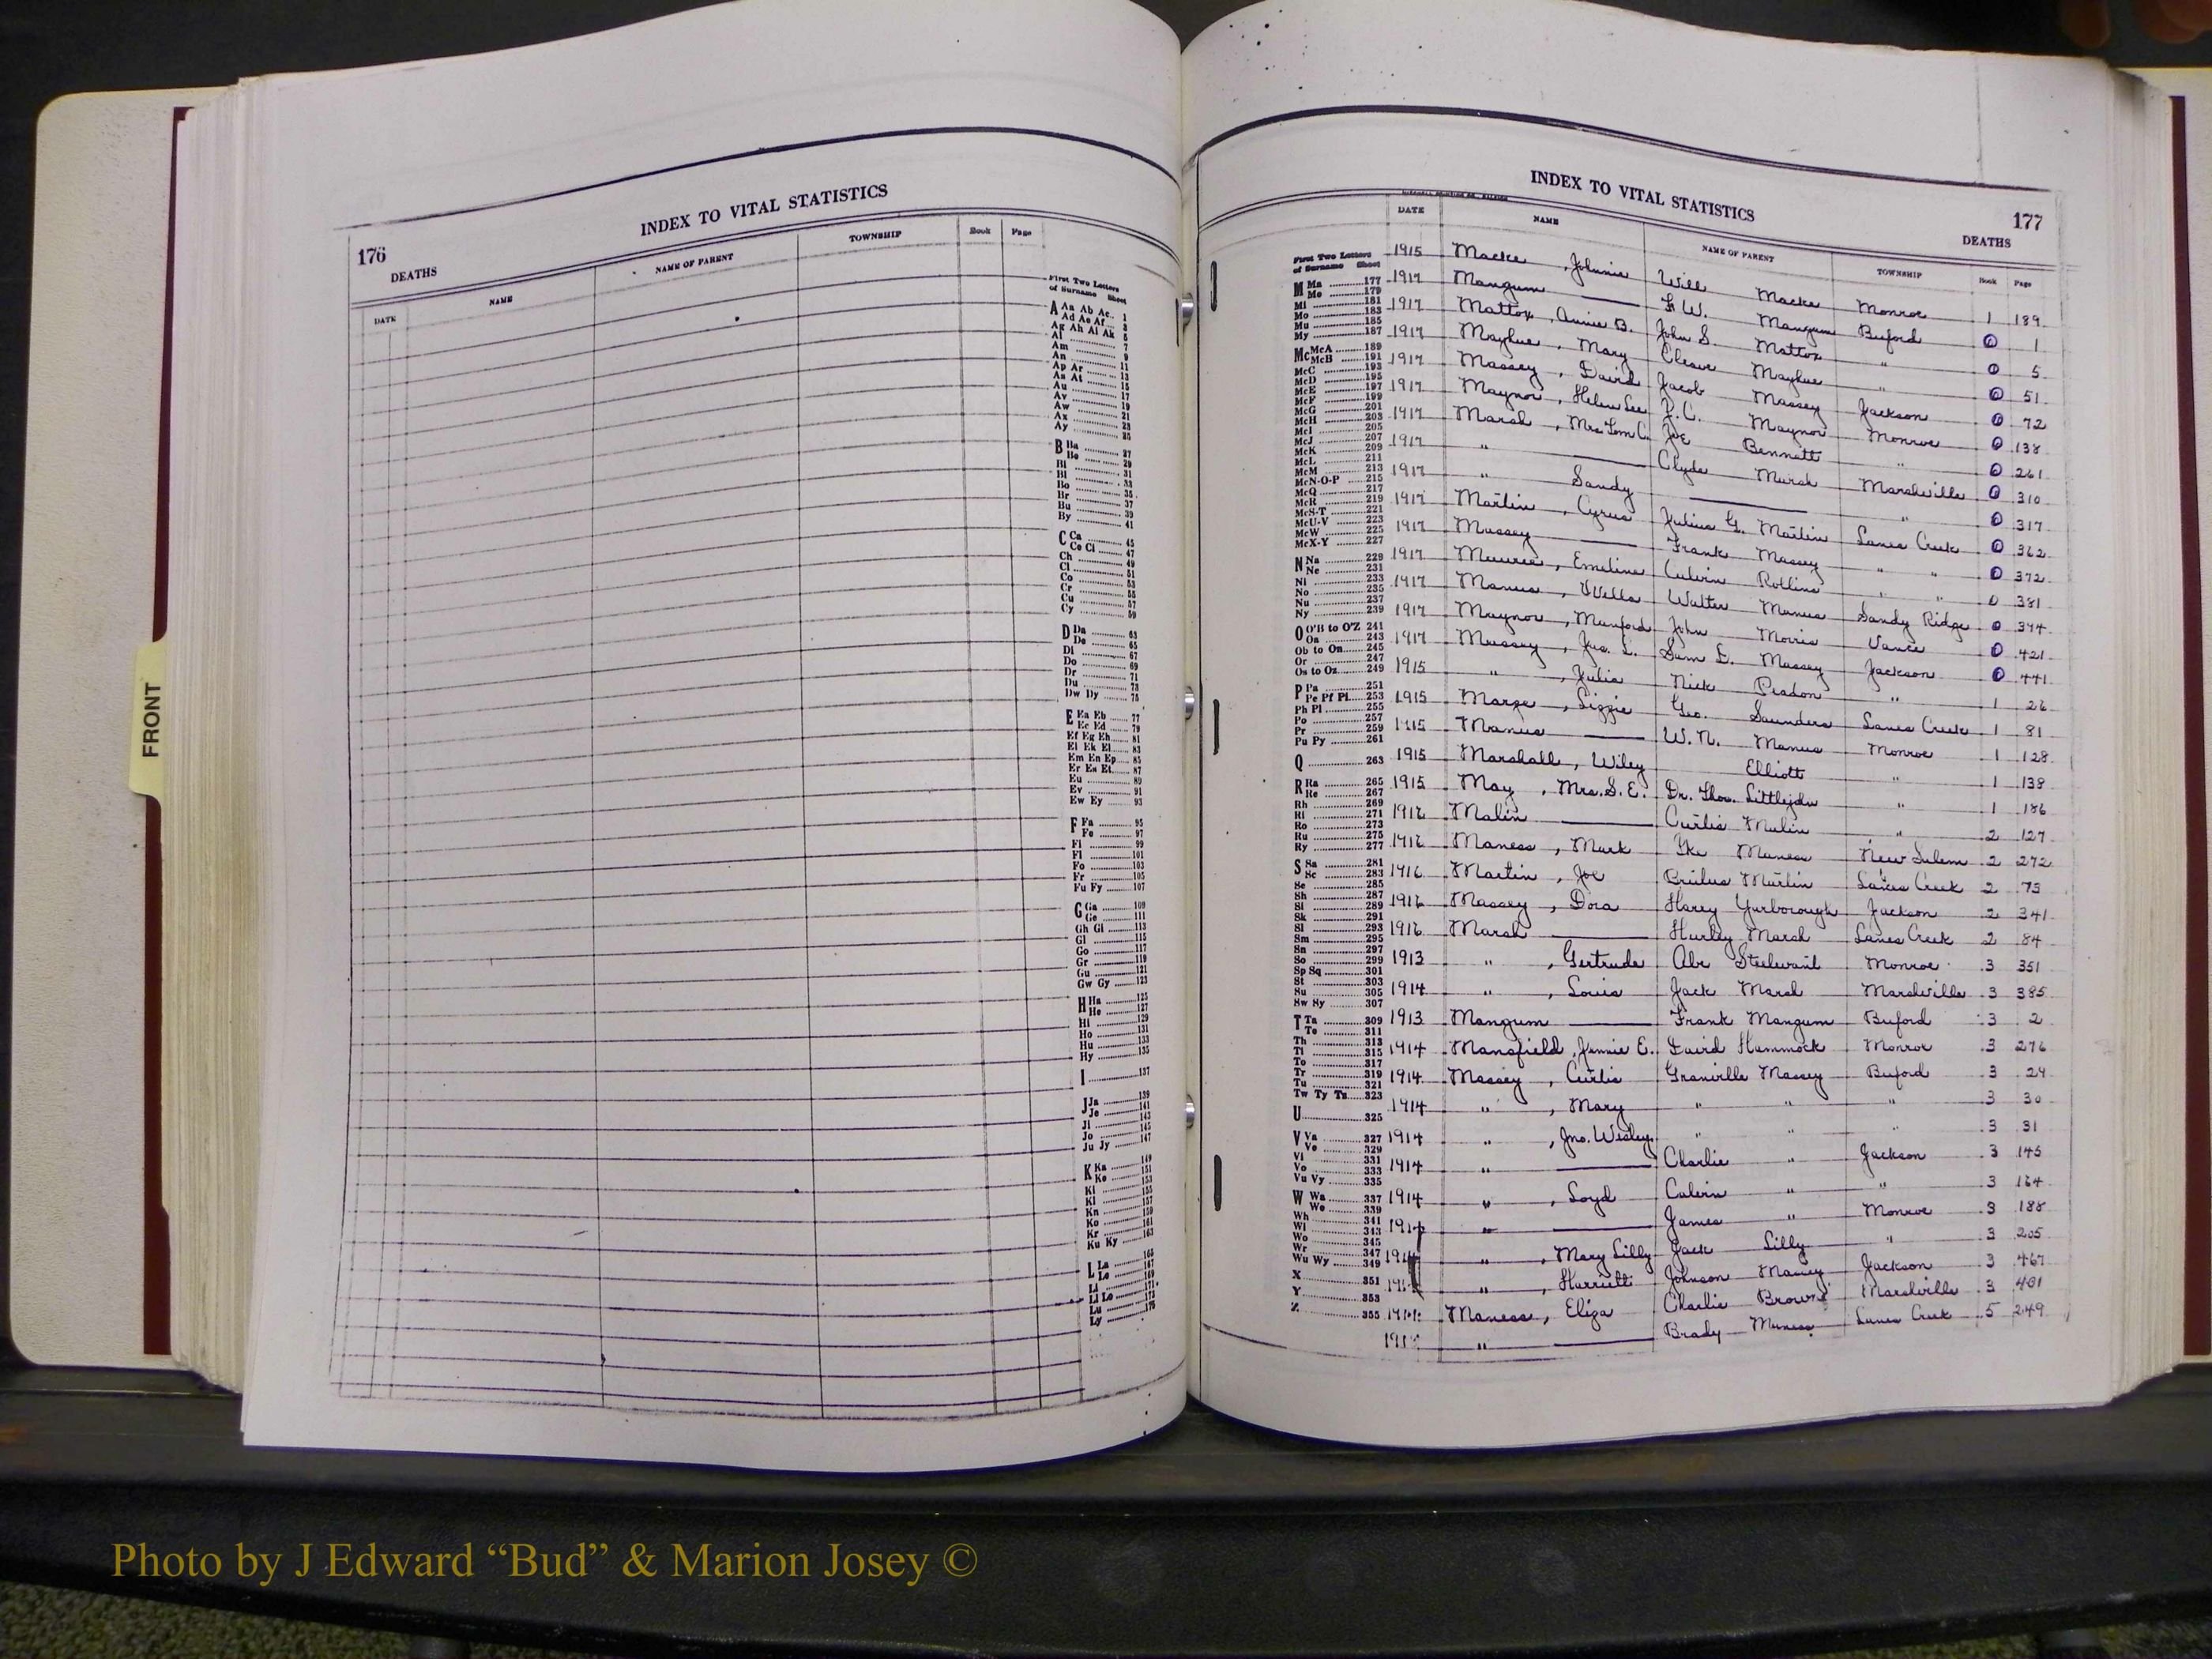 FRONT
176
INDEX TO VITAL STATISTICS
DEATHS
DATE NAME NAME OF PARENT TOWNSHIP Book Page
First Two Letters
of Surname Sheet
A Aa Ab Ac 1
Ad Ae Af 3
Ag Ah Ai Ak 5
Al 7
Am 9
An 11
Ap Ar 13
As At 15
Au 17
Av 19
Aw 21
Ax 23
Ay 25
B Ba 27
Be 29
Bi 31
Bl 33
Bo 35
Br 37
Bu 39
By 41
C Ca 45
Ce Ci 47
Ch 49
Cl 51
Co 53
Cr 55
Cu 57
Cy 59
D Da 63
De 65
Di 67
Do 69
Dr 71
Du 73
Dw Dy 75
E Ea Eb 77
Ec Ed 79
Ef Eg Eh 81
Ei Ek El 83
Em En Ep 85
Er Es Et 87
Eu 89
Ev 91
Ew Ey 93
F Fa 95
Fe 97
Fi 99
Fl 101
Fo 103
Fr 105
Fu Fy 107
G Ga 109
Ge 111
Gh Gi 113
Gl 115
Go 117
Gr 119
Gu 121
Gw Gy 123
H Ha 125
He 127
Hi 129
Ho 131
Hu 133
Hy 135
I 137
J Ja 139
Je 141
Ji 143
Jo 145
Ju Jy 147
K Ka 149
Ke 151
Ki 153
Kl 155
Kn 157
Ko 159
Kr 161
Ku Ky 163
L La 165
Le 167
Li 169
Ll Lo 171
Lu 173
Ly 175
INDEX TO VITAL STATISTICS
177
DEATHS
DATE NAME NAME OF PARENT TOWNSHIP Book Page
First Two Letters
of Surname Sheet
M Ma 177
Me 179
Mi 181
Mo 183
Mu 185
My 187
Mc McA 189
McB 191
McC 193
McD 195
McE 197
McF 199
McG 201
McH 203
McI 205
McJ 207
McK 209
McL 211
McM 213
McN-O-P 215
McQ 217
McR 219
McS-T 221
McU-V 223
McW 225
McX-Y 227
N Na 229
Ne 231
Ni 233
No 235
Nu 237
Ny 239
O O'B to O'Z 241
Oa 243
Ob to On 245
Or 247
Os to Oz 249
P Pa 251
Pe Pf Pi 253
Ph Pl 255
Po 257
Pr 259
Pu Py 261
Q 263
R Ra 265
Re 267
Rh 269
Ri 271
Ro 273
Ru 275
Ry 277
S Sa 281
Sc 283
Se 285
Sh 287
Si 289
Sk 291
Sl 293
Sm 295
Sn 297
So 299
Sp Sq 301
St 303
Su 305
Sw Sy 307
T Ta 309
Te 311
Th 313
Ti 315
To 317
Tr 319
Tu 321
Tw Ty Tz 323
U 325
V Va 327
Ve 329
Vi 331
Vo 333
Vu Vy 335
W Wa 337
We 339
Wh 341
Wi 343
Wo 345
Wr 347
Wu Wy 349
X 351
Y 353
Z 355
1915 Macke, Johnnie Will Macke Monroe 1 189
1917 Mangum F. W. Mangum Buford 0 1
1917 Mattox, Annie B. John S. Mattox " 0 5
1917 Mayhue, Mary Cleave Mayhue " 0 51
1917 Massey, David Jacob Massey Jackson 0 72
1917 Maynor, Helen Lee P. C. Maynor Monroe 0 138
1917 Marsh, Mrs. Tom C. Joe Bennett " 0 261
1917 " Clyde Marsh Marshville 0 310
1917 " Sandy " 0 317
1917 Martin, Cyrus Julius G. Martin Lanes Creek 0 362
1917 Massey Frank Massey " " 0 372
1917 Emeline Calvin Rollins " " 0 381
1917 Manus, Walter Manus Sandy Ridge 0 394
1917 Maynor, Munford John Morris Vance 0 421
1917 Massey, Jas. L. Sam L. Massey Jackson 0 441
1915 ", Julia Nick Peadon " 1 26
1915 Marze, Lizzie Geo. Saunders Lanes Creek 1 81
1915 Manus W. N. Manus Monroe 1 128
1915 Marshall, Wiley Elliott " 1 138
1915 May, Mrs. S. E. Dr. Thos. Littlejohn " 1 186
1916 Malin Curtis Malin " 2 127
1916 Maness, Mark Ike Maness New Salem 2 272
1916 Martin, Joe Martin Lanes Creek 2 73
1916 Massey, Dora Harry Yarborough Jackson 2 341
1916 Marsh Hurley Marsh Lanes Creek 2 84
1913 ", Gertrude Abe Monroe 3 351
1914 ", Louis Jack Marsh Marshville 3 385
1913 Mangum Frank Mangum Buford 3 2
1914 Mansfield, Jennie E. David Hammock Monroe 3 276
1914 Massey, Curtis Granville Massey Buford 3 29
1914 ", Mary " " " 3 30
1914 ", Jno. Wesley " " " 3 31
1914 " Charlie " Jackson 3 145
1914 ", Loyd Calvin " " 3 164
1914 " James " Monroe 3 188
1914 ", Mary Lilly Jack Lilly " 3 205
", Harriett Johnson Massey Jackson 3 467
Maness, Eliza Charlie Brown Marshville 3 401
" Brady Maness Lanes Creek 5 249
Photo by J Edward “Bud” & Marion Josey ©